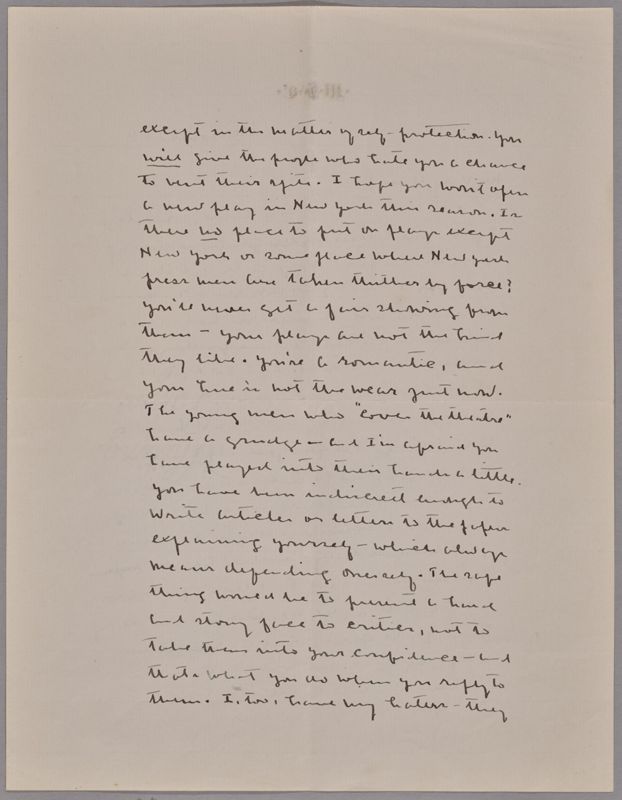 except in the matter of self-protection. You
will give the people who hate you a chance
to vent their spite. I hope you won't open
a new play in New York this season. Is
there no place to put on plays except
New York or some place where New York
press men are taken thither by force?
You'll never get a fair showing from
them — your plays are not the kind
they like. You're a romantic, and
your line is not the wear just now.
The young men who "cover the theatre"
have a grudge — and I'm afraid you
have played into their hands a little.
You have been indiscreet enough to
write articles or letters to the papers
explaining yourself — which always
means defending oneself. The safe
thing would be to present a hard
and stony face to critics, not to
take them into your confidence — and
that's what you do when you reply to
them. I, too, have my haters — they